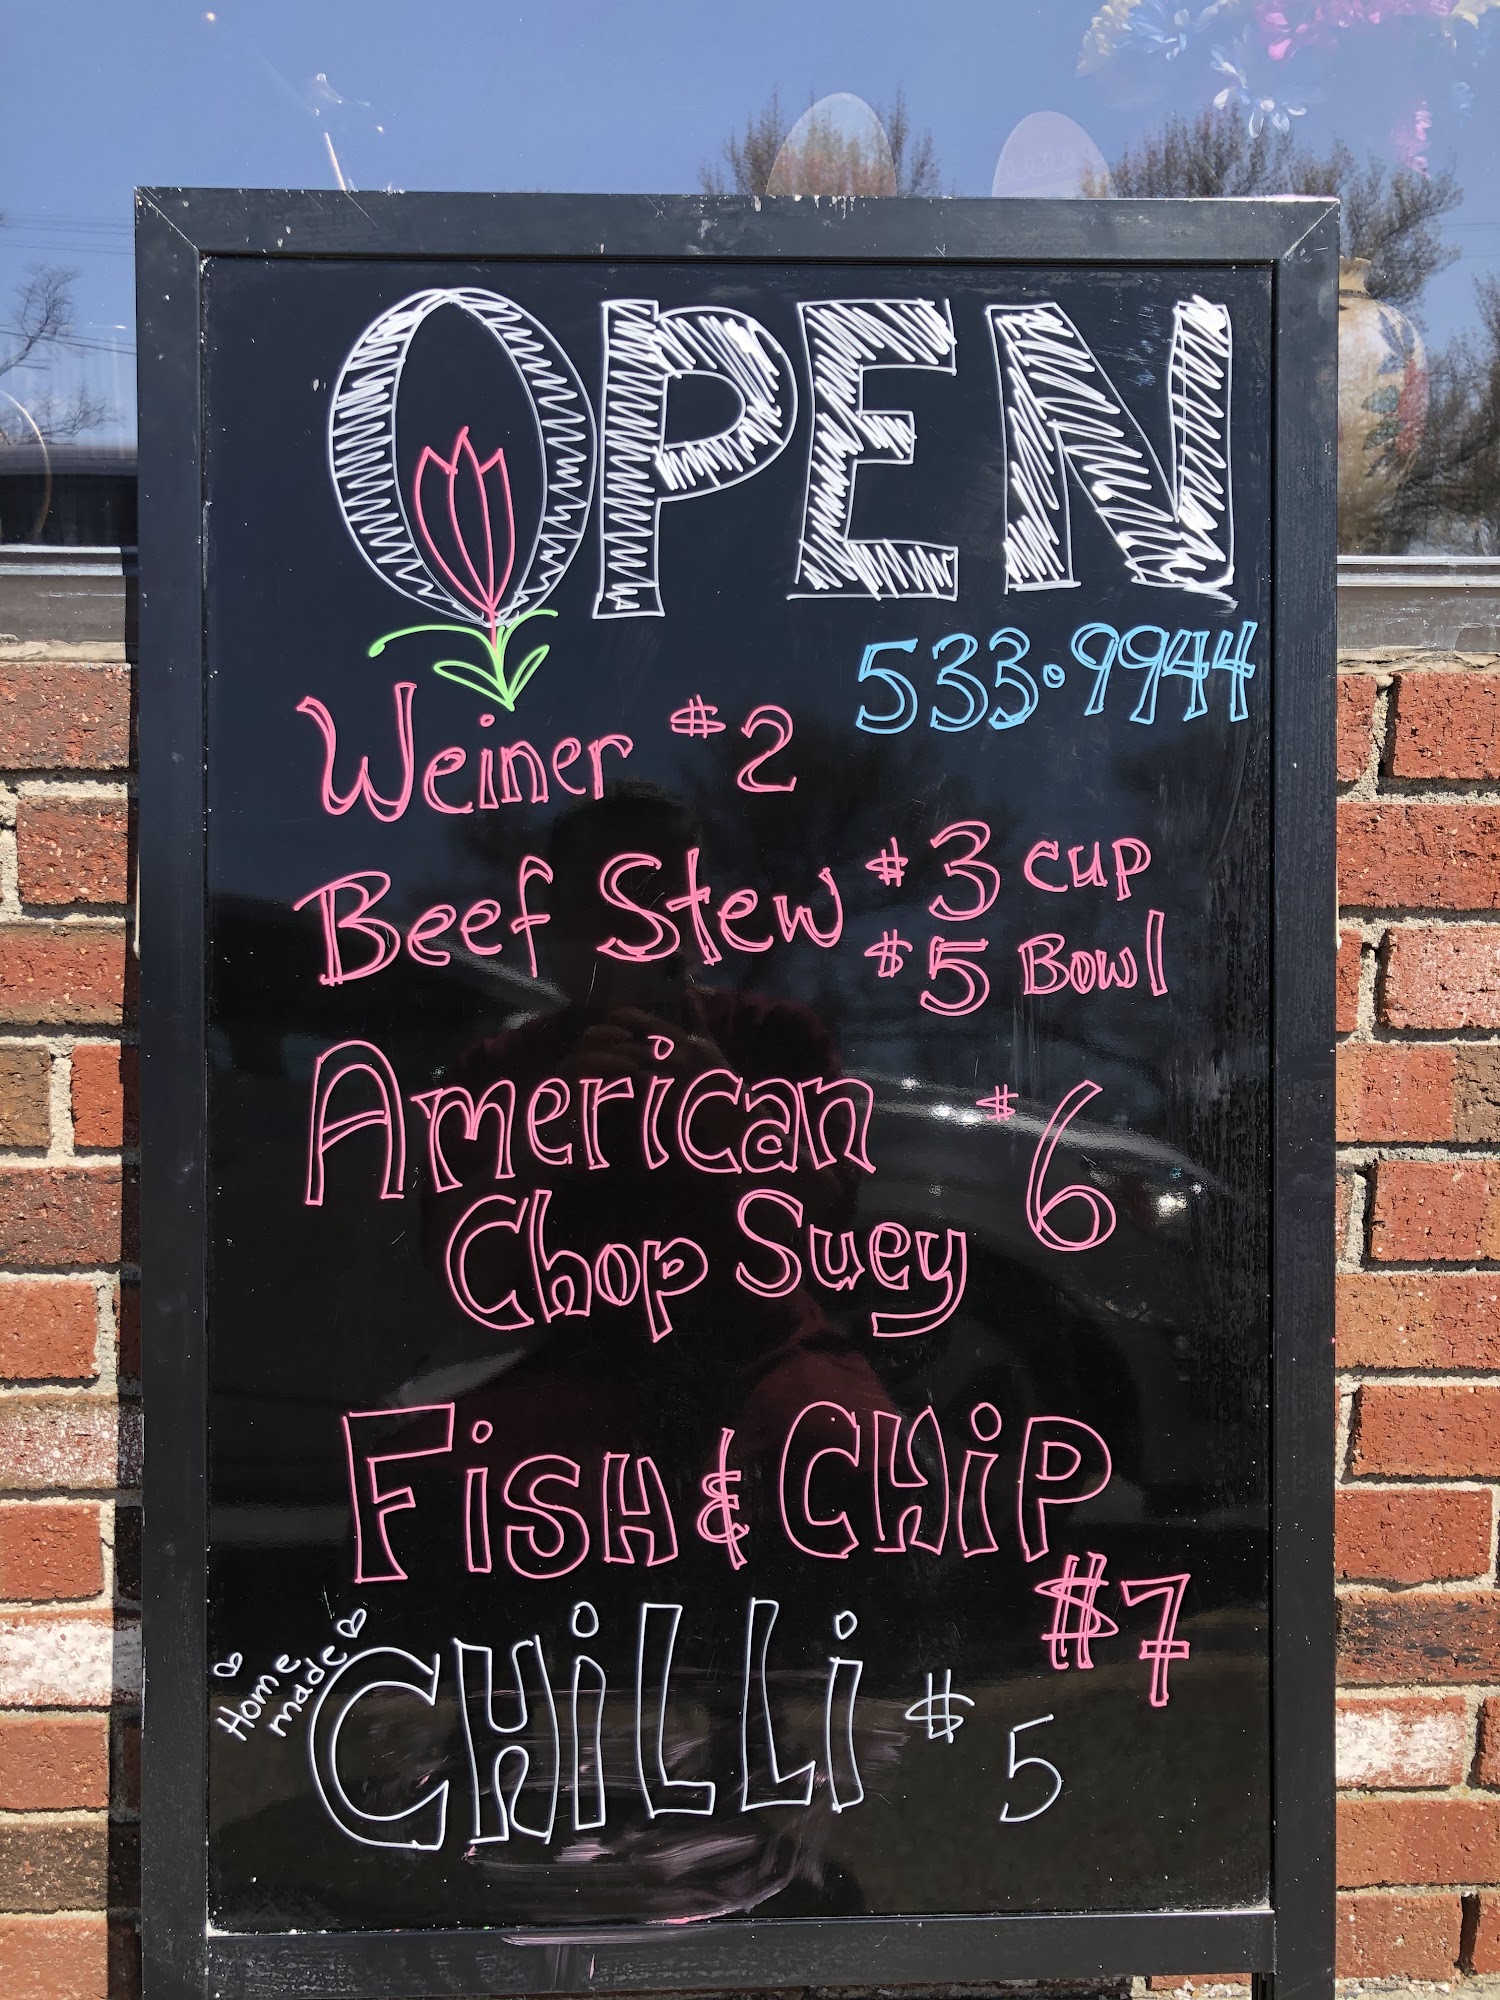 OPEN
533·9944
Weiner $2
Beef Stew $3 cup
$5 Bowl
American $6
Chop Suey
FiSH & CHiP
$7
Home made CHiLLi $5